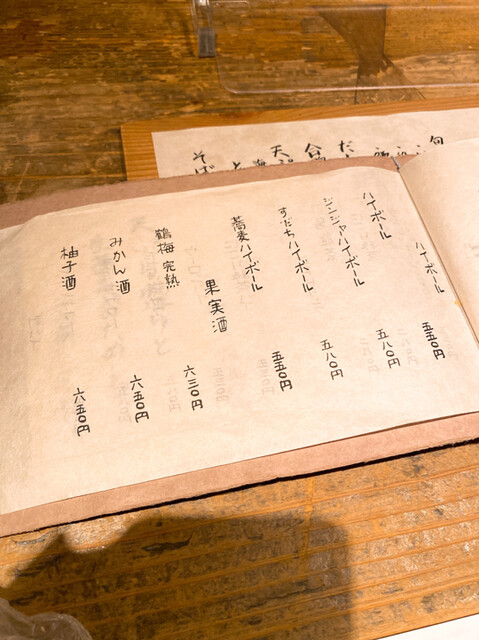 旬
だ
天ぷ
と
そば
ハイボール
ハイボール 五五〇円
ジンジャハイボール 五八〇円
すだちハイボール 五八〇円
蕎麦ハイボール 五五〇円
果実酒
鶴梅 完熟 六三〇円
みかん酒 六五〇円
柚子酒 六五〇円